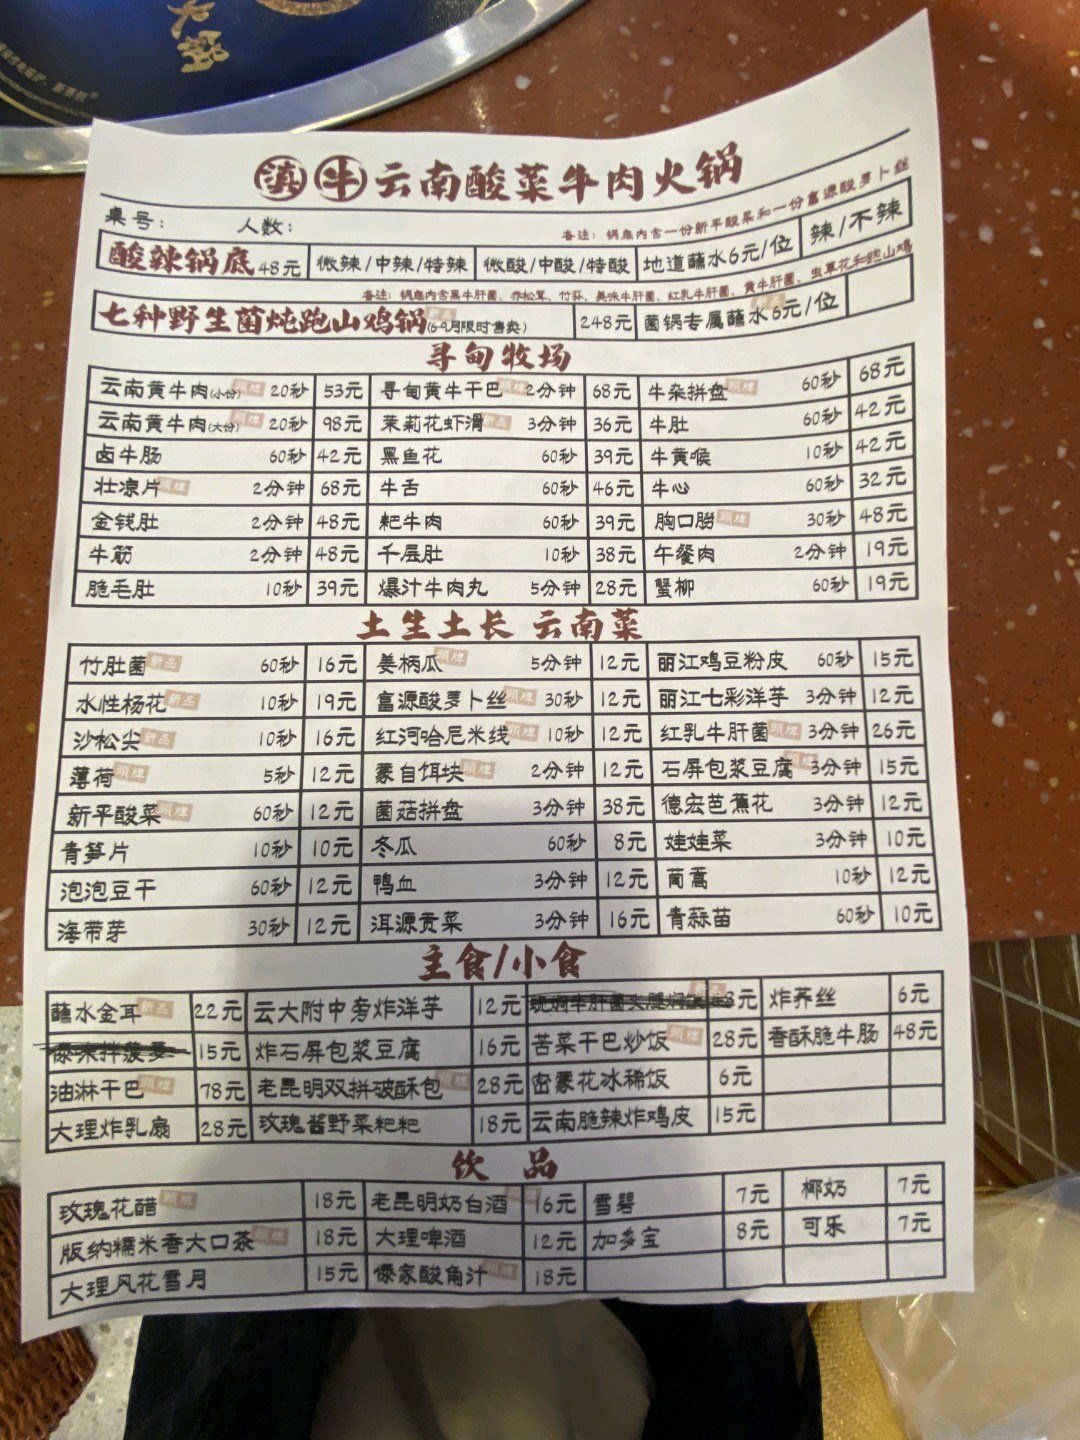 滇牛云南酸菜牛肉火锅
桌号: 人数: 备注: 锅底内含一份新平酸菜和一份富源酸萝卜丝
酸辣锅底48元 微辣/中辣/特辣 微酸/中酸/特酸 地道蘸水6元/位 辣/不辣
备注: 锅底内含黑牛肝菌、赤松茸、竹荪、美味牛肝菌、红乳牛肝菌、黄牛肝菌、虫草花和跑山鸡
七种野生菌炖跑山鸡锅(6-9月限时售卖) 新品 248元 菌锅专属蘸水6元/位 新品
寻甸牧场
云南黄牛肉(小份) 頭牌 20秒 53元 寻甸黄牛干巴 頭牌 2分钟 68元 牛杂拼盘 頭牌 60秒 68元
云南黄牛肉(大份) 頭牌 20秒 98元 茉莉花虾滑 新品 3分钟 36元 牛肚 60秒 42元
卤牛肠 60秒 42元 黑鱼花 60秒 39元 牛黄喉 10秒 42元
壮凉片 頭牌 2分钟 68元 牛舌 60秒 46元 牛心 60秒 32元
金钱肚 2分钟 48元 粑牛肉 60秒 39元 胸口朥 頭牌 30秒 48元
牛筋 2分钟 48元 千层肚 10秒 38元 午餐肉 2分钟 19元
脆毛肚 10秒 39元 爆汁牛肉丸 5分钟 28元 蟹柳 60秒 19元
土生土长 云南菜
竹肚菌 新品 60秒 16元 姜柄瓜 頭牌 5分钟 12元 丽江鸡豆粉皮 60秒 15元
水性杨花 新品 10秒 19元 富源酸萝卜丝 頭牌 30秒 12元 丽江七彩洋芋 3分钟 12元
沙松尖 新品 10秒 16元 红河哈尼米线 頭牌 10秒 12元 红乳牛肝菌 頭牌 3分钟 26元
薄荷 頭牌 5秒 12元 蒙自饵块 頭牌 2分钟 12元 石屏包浆豆腐 頭牌 3分钟 15元
新平酸菜 頭牌 60秒 12元 菌菇拼盘 3分钟 38元 德宏芭蕉花 3分钟 12元
青笋片 10秒 10元 冬瓜 60秒 8元 娃娃菜 3分钟 10元
泡泡豆干 60秒 12元 鸭血 3分钟 12元 茼蒿 10秒 12元
海带芽 30秒 12元 洱源贡菜 3分钟 16元 青蒜苗 60秒 10元
主食/小食
蘸水金耳 新品 22元 云大附中旁炸洋芋 12元 8元 炸荞丝 6元
15元 炸石屏包浆豆腐 16元 苦菜干巴炒饭 頭牌 28元 香酥脆牛肠 48元
油淋干巴 頭牌 78元 老昆明双拼破酥包 頭牌 28元 密蒙花冰稀饭 6元
大理炸乳扇 28元 玫瑰酱野菜粑粑 18元 云南脆辣炸鸡皮 15元
饮 品
玫瑰花醋 頭牌 18元 老昆明奶白酒 頭牌 16元 雪碧 7元 椰奶 7元
版纳糯米香大口茶 頭牌 18元 大理啤酒 12元 加多宝 8元 可乐 7元
大理风花雪月 15元 傣家酸角汁 頭牌 18元